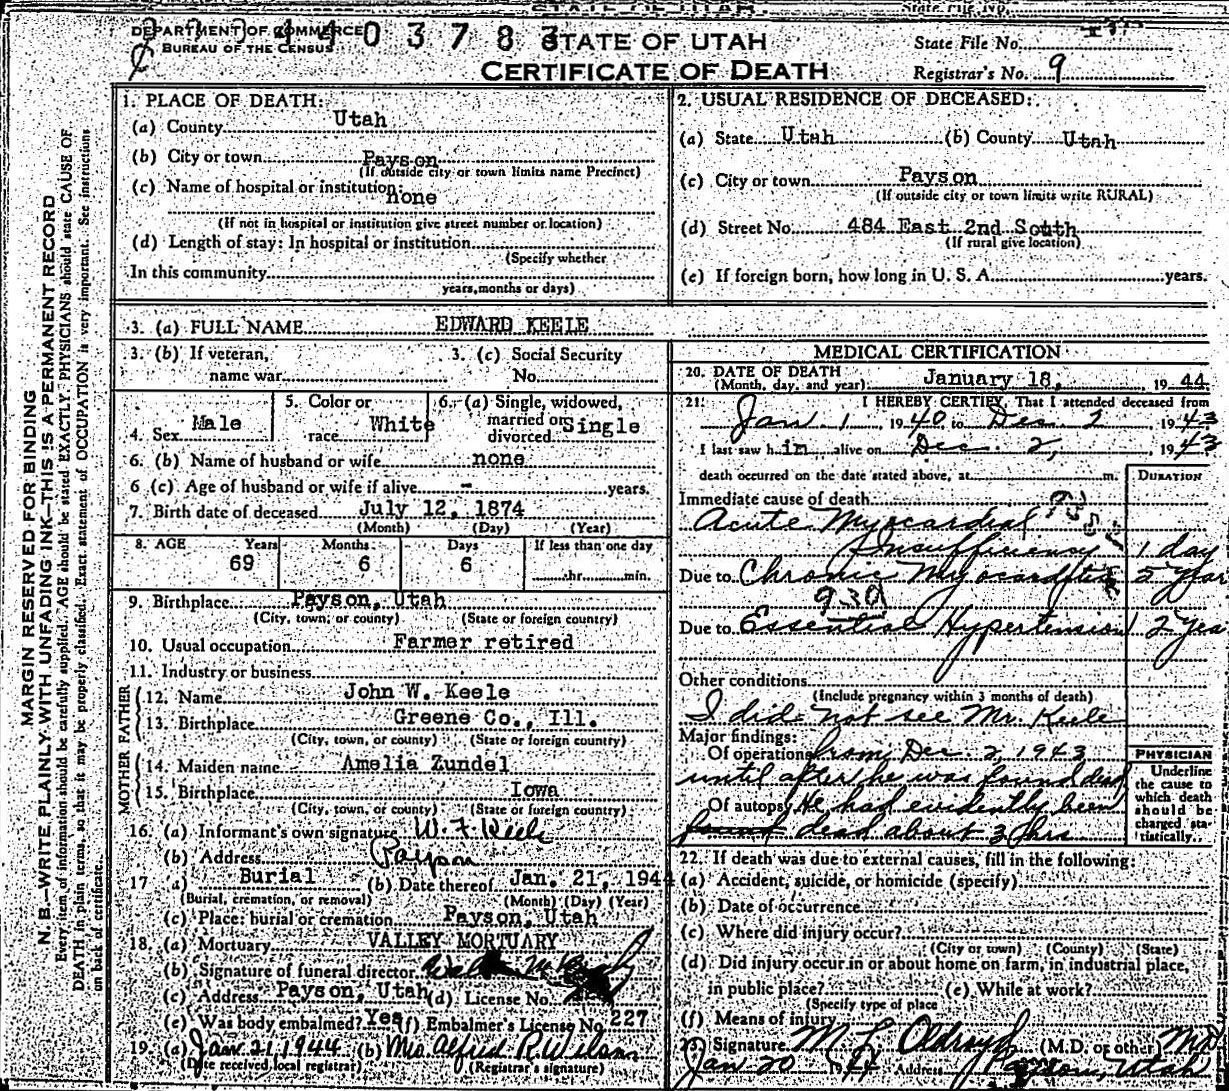 STATE OF UTAH
State File No.
DEPARTMENT OF COMMERCE
BUREAU OF THE CENSUS
0 3 7 8 3
STATE OF UTAH
CERTIFICATE OF DEATH
State File No.
Registrar's No. 9
MARGIN RESERVED FOR BINDING
N. B.—WRITE PLAINLY WITH UNFADING INK—THIS IS A PERMANENT RECORD
Every item of information should be carefully supplied. AGE should be stated EXACTLY. PHYSICIANS should state CAUSE OF
DEATH in plain terms, so that it may be properly classified. Exact statement of OCCUPATION is very important. See instructions
on back of certificate.
1. PLACE OF DEATH:
(a) County Utah
(b) City or town Payson
(If outside city or town limits name Precinct)
(c) Name of hospital or institution:
none
(If not in hospital or institution give street number or location)
(d) Length of stay: In hospital or institution
(Specify whether
In this community
years, months or days)
2. USUAL RESIDENCE OF DECEASED:
(a) State Utah (b) County Utah
(c) City or town Payson
(If outside city or town limits write RURAL)
(d) Street No. 484 East 2nd South
(If rural give location)
(e) If foreign born, how long in U. S. A. years.
3. (a) FULL NAME EDWARD KEELE
3. (b) If veteran, 3. (c) Social Security
name war No.
4. Sex Male 5. Color or race White 6. (a) Single, widowed, married or divorced Single
6. (b) Name of husband or wife none
6 (c) Age of husband or wife if alive - years.
7. Birth date of deceased July 12, 1874
(Month) (Day) (Year)
8. AGE Years Months Days If less than one day
69 6 6 hr. min.
9. Birthplace Payson, Utah
(City, town, or county) (State or foreign country)
10. Usual occupation Farmer retired
11. Industry or business
FATHER
12. Name John W. Keele
13. Birthplace Greene Co., Ill.
(City, town, or county) (State or foreign country)
MOTHER
14. Maiden name Amelia Zundel
15. Birthplace Iowa
(City, town, or county) (State or foreign country)
16. (a) Informant's own signature W. F. Keele
(b) Address Payson
17 (a) Burial (b) Date thereof Jan. 21, 1944
(Burial, cremation, or removal) (Month) (Day) (Year)
(c) Place: burial or cremation Payson, Utah
18. (a) Mortuary VALLEY MORTUARY
(b) Signature of funeral director
(c) Address Payson, Utah (d) License No.
(e) Was body embalmed? Yes (f) Embalmer's License No. 227
19. (a) Jan 21, 1944 (b) Mrs. Alfred R. Wilson
(Date received local registrar) (Registrar's signature)
MEDICAL CERTIFICATION
20. DATE OF DEATH
(Month, day, and year) January 18, 1944
21. I HEREBY CERTIFY, That I attended deceased from
Jan. 1, 1940, to Dec. 2 1943
I last saw h im alive on Dec. 2, 1943
death occurred on the date stated above, at m. DURATION
Immediate cause of death
Acute Myocardial
Insufficiency 1 day
Due to Chronic Myocarditis 5 year
930
Due to Essential Hypertension 12 yes
Other conditions
(Include pregnancy within 3 months of death)
I did not see Mr. Keele
Major findings:
Of operations from Dec 2 1943
until after he was found dead
Of autopsy He had evidently been
found dead about 3 hrs
PHYSICIAN
Underline
the cause to
which death
should be
charged sta-
tistically.
22. If death was due to external causes, fill in the following:
(a) Accident, suicide, or homicide (specify)
(b) Date of occurrence
(c) Where did injury occur?
(City or town) (County) (State)
(d) Did injury occur in or about home on farm, in industrial place,
in public place? (e) While at work?
(Specify type of place
(f) Means of injury
23. Signature M L Oldroyd (M.D. or other) M.D.
Jan 20 1944 Address Payson, Utah